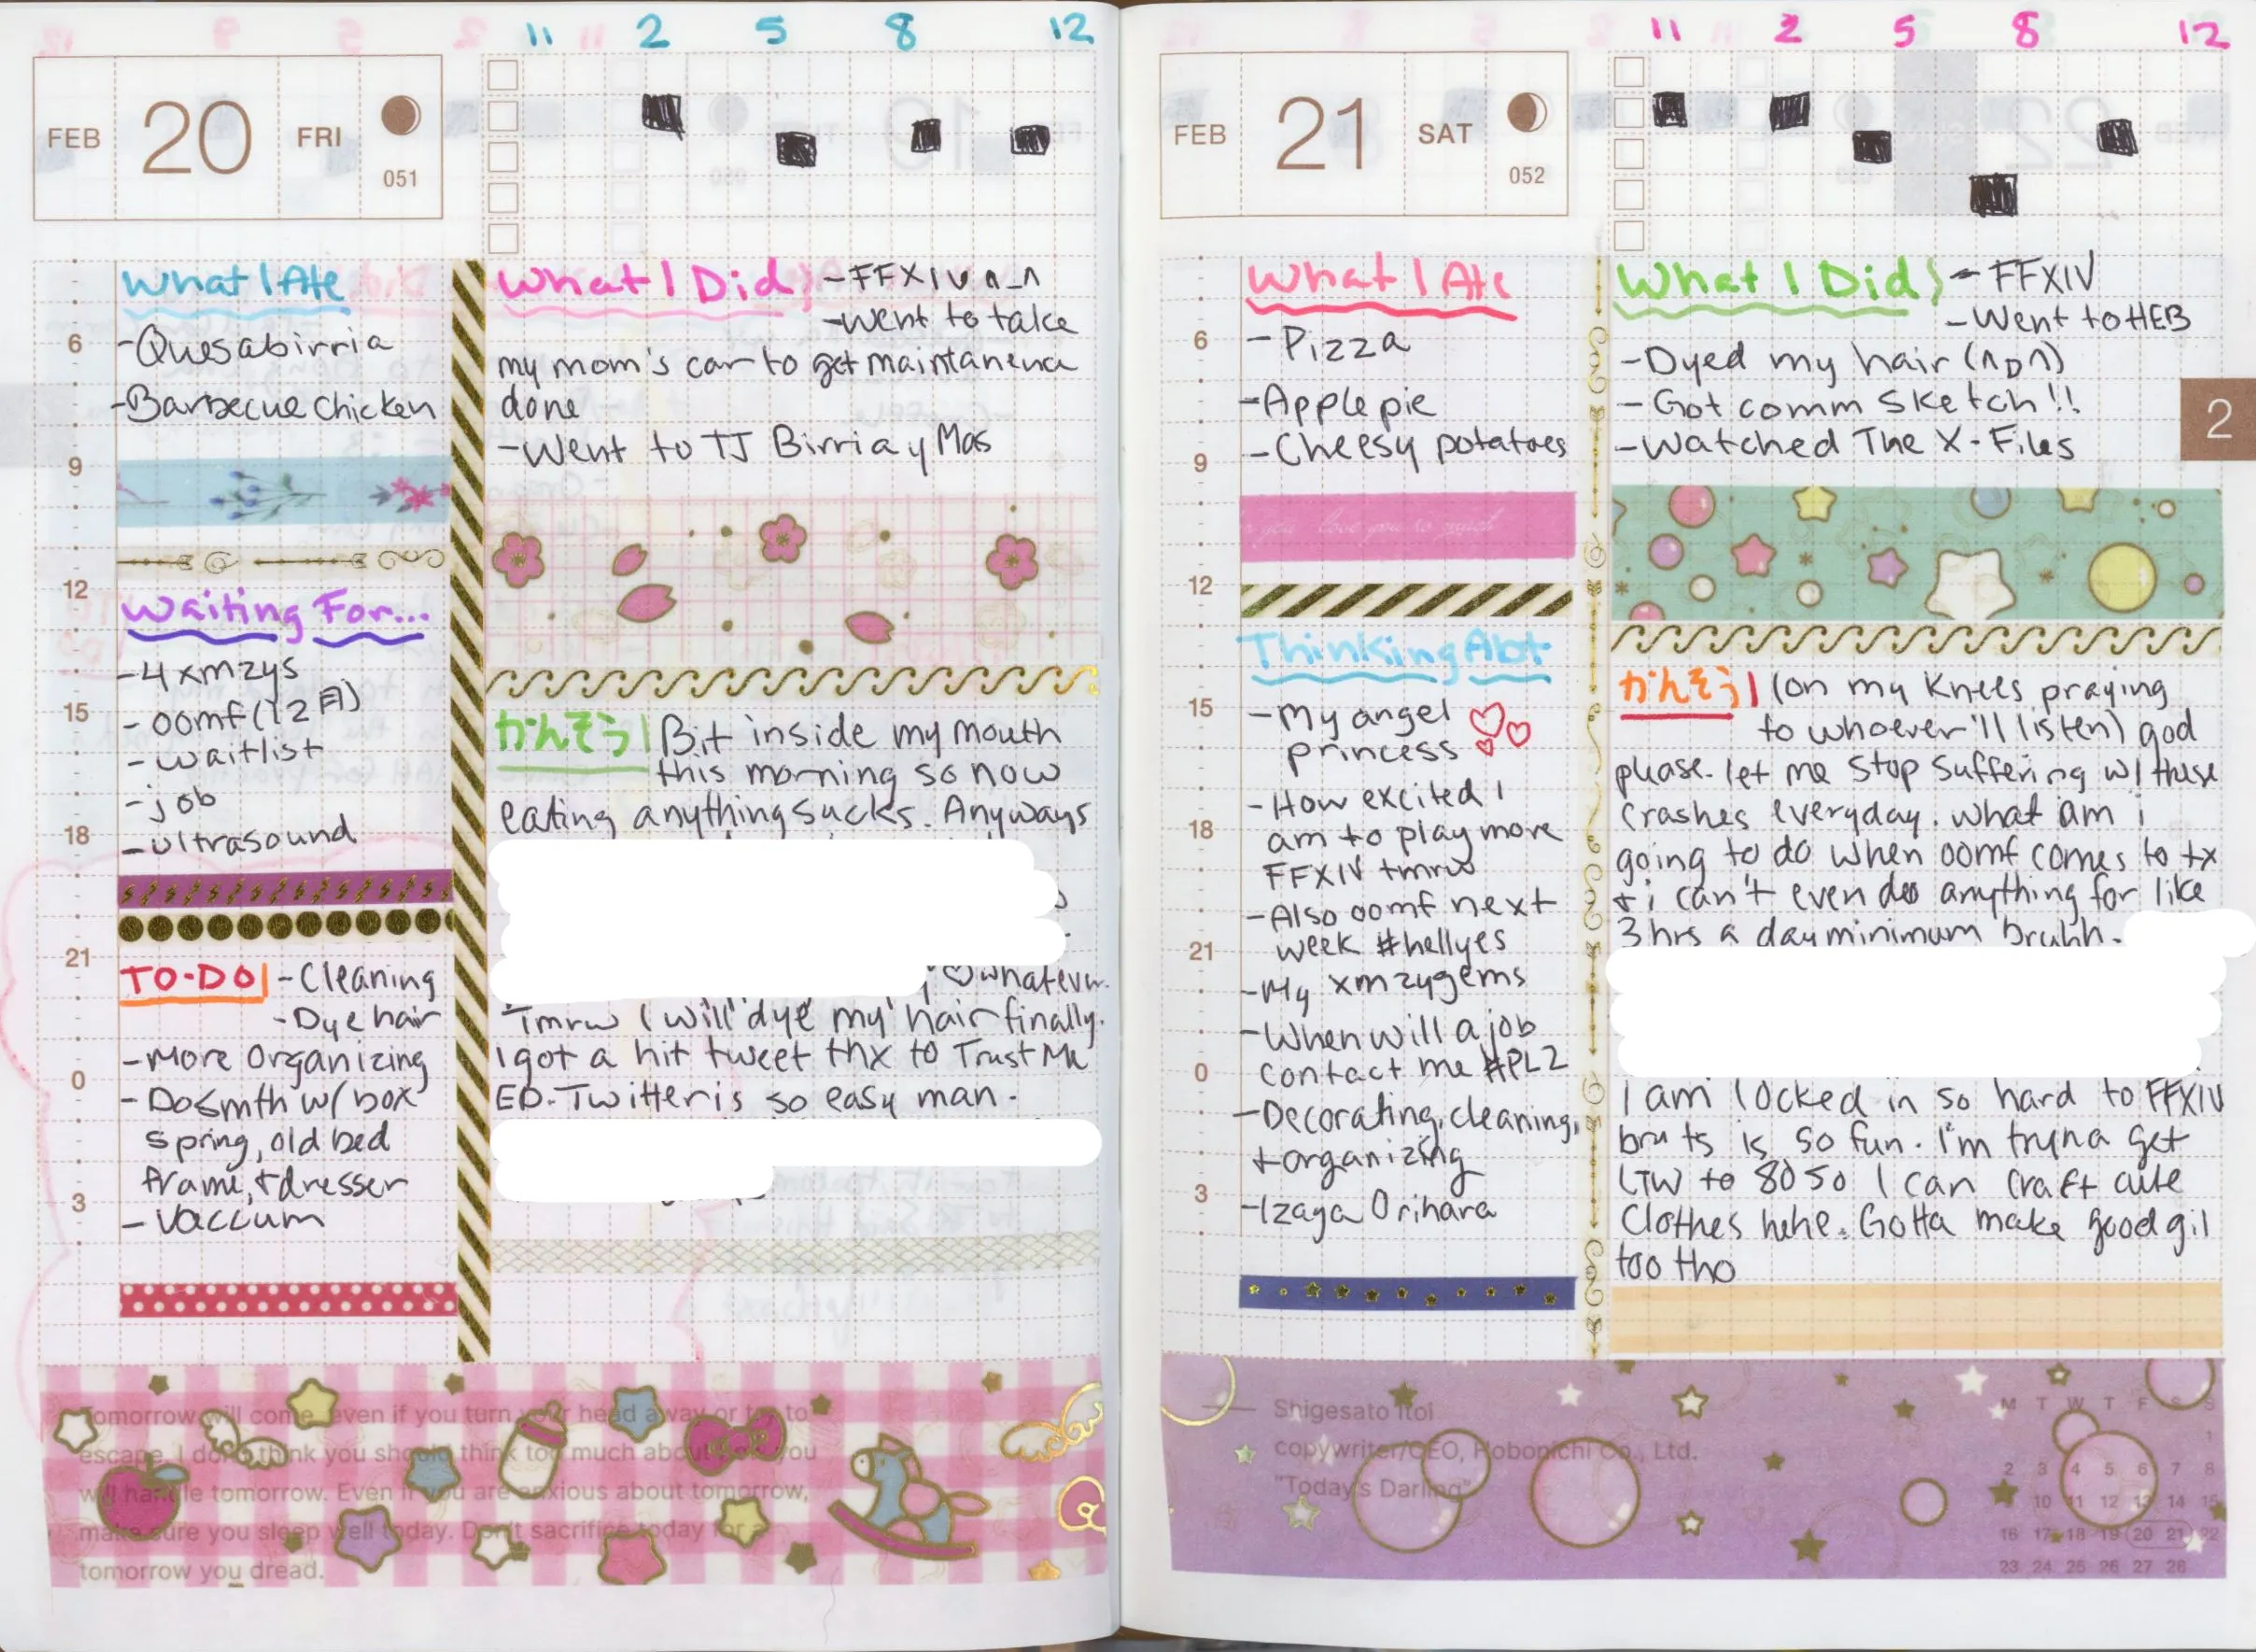 11 2 5 8 12
FEB 20 FRI
051
What I Ate
6
-Quesabirria
-Barbecue chicken
9
12
Waiting For...
-4 xmzys
15
-oomf (12日)
-waitlist
-job
18
-ultrasound
21
TO-DO -Cleaning
-Dye hair
-More organizing
0
-Do smth w/ box
spring, old bed
frame, + dresser
3
-Vaccum
What I Did -FFXIV n_n
-Went to take
my mom's car to get maintanence
done
-Went to TJ Birria y Mas
かんそう Bit inside my mouth
this morning so now
eating anything sucks. Anyways
whatever.
Tmrw I will dye my hair finally.
I got a hit tweet thx to Trust Me
ED. Twitter is so easy man.
Tomorrow will come, even if you turn your head away or try to
escape. I don't think you should think too much about how you
will handle tomorrow. Even if you are anxious about tomorrow,
make sure you sleep well today. Don't sacrifice today for a
tomorrow you dread.
11 2 5 8 12
FEB 21 SAT
052
What I Ate
6
-Pizza
-Apple pie
9
-Cheesy potatoes
love you so much
12
Thinking Abt
15
-My angel
princess
-How excited I
18
am to play more
FFXIV tmrw
-Also oomf next
21
week #hellyes
-My xmzygems
-When will a job
0
contact me #PLZ
-Decorating, cleaning,
+ organizing
3
-Izaya Orihara
What I Did - FFXIV
-Went to HEB
-Dyed my hair (nDn)
-Got comm sketch!!
-Watched The X-Files
2
かんそう (on my knees praying
to whoever'll listen) god
please. let me stop suffering w/ these
crashes everyday. what am i
going to do when oomf comes to tx
+ i can't even do anything for like
3 hrs a day minimum bruhh.
I am locked in so hard to FFXIV
bru ts is so fun. I'm tryna get
LTW to 80 so I can craft cute
clothes hehe. Gotta make good gil
too tho
Shigesato Itoi
copywriter/CEO, Hobonichi Co., Ltd.
"Today's Darling"
M T W T F S S
1
2 3 4 5 6 7 8
10 11 12 13 14 15
16 17 18 19 20 21 22
23 24 25 26 27 28